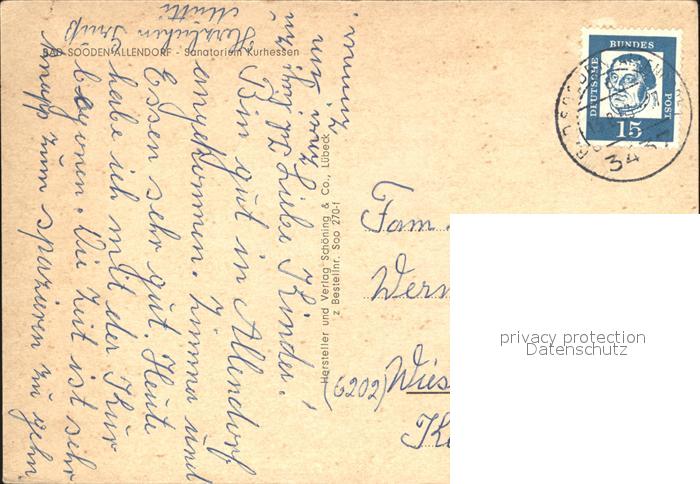 BAD SOODEN-ALLENDORF - Sanatorium Kurhessen
Liebe Kinder!
Bin gut in Allendorf
angekommen. Zimmer und
Essen sehr gut. Heute
habe ich mit der Kur
begonen. Die Zeit ist sehr
knapp zum spazieren zu gehn.
Herzlichen Gruß
Mutti
Zimmer
Hersteller und Verlag Schöning & Co., Lübeck
z Bestellnr. Soo 270-f
DEUTSCHE
BUNDES
POST
15
34
Fam.
(6202) Wies
privacy protection
Datenschutz